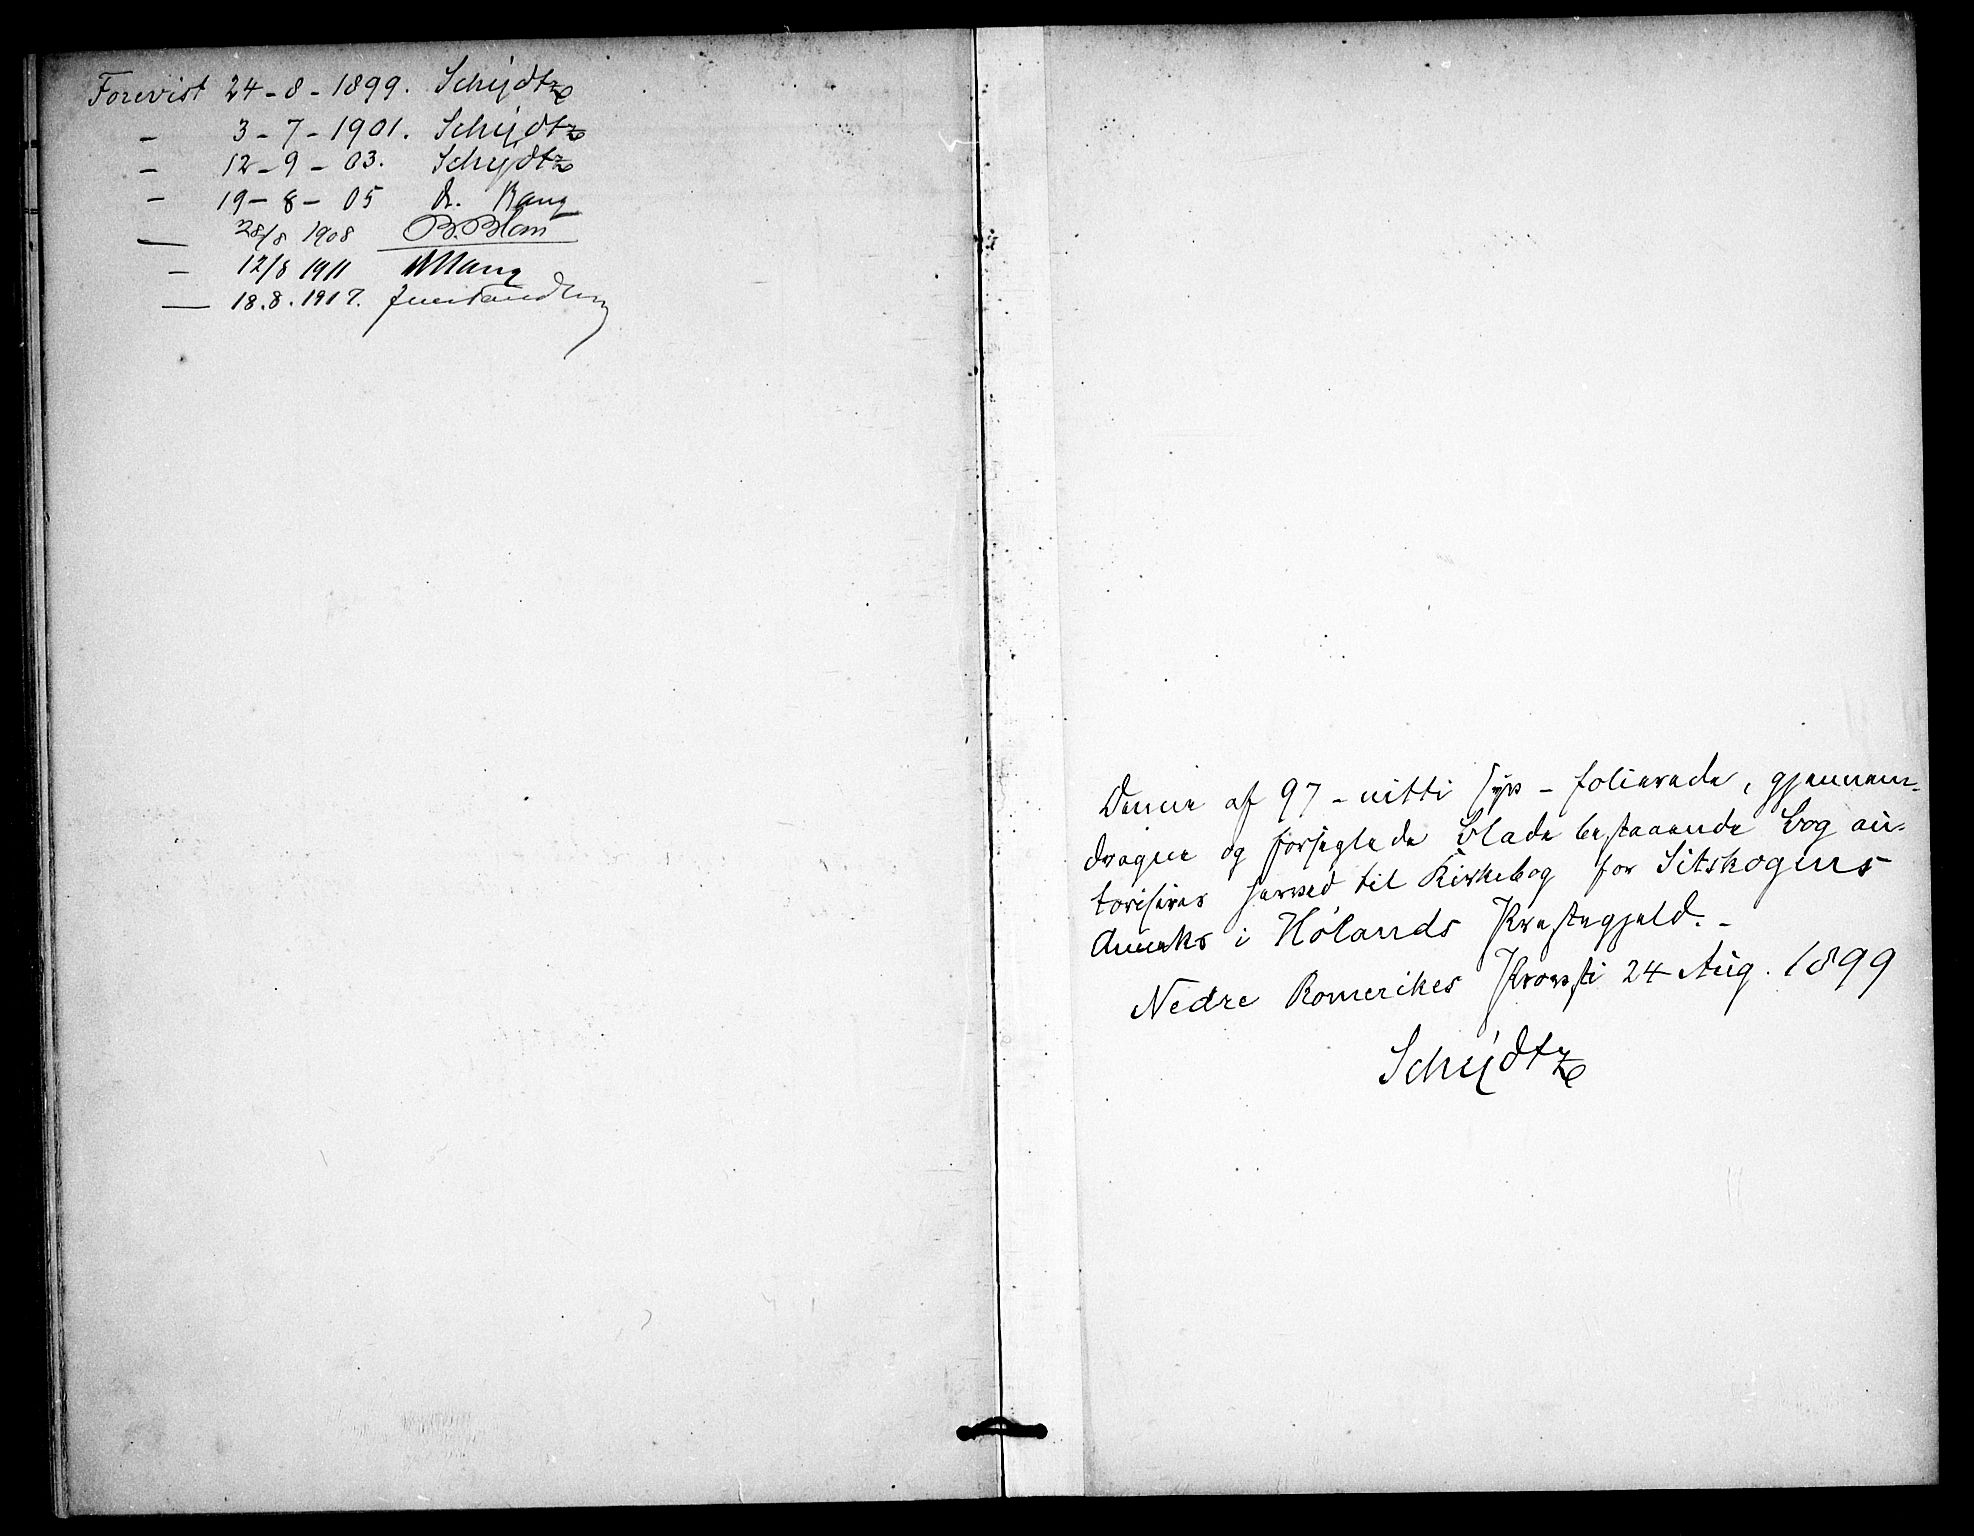 Forevist 24-8-1899. Schijdtz
- 3-7-1901. Schijdtz
- 12-9-03. Schijdtz
- 19-8-05 Dr. Bang
- 28/8 1908 B. Blom
- 12/8 1911
- 18.8.1917.
Denne af 97 - nitti syv - folierede, gjennem-
dragne og forseglede Blade bestaaende Bog au-
toriseres herved til Kirkebog for Sitskogens
Anneks i Hølands Præstegjeld. -
Nedre Romerikes Provsti 24 Aug. 1899
Schijdtz